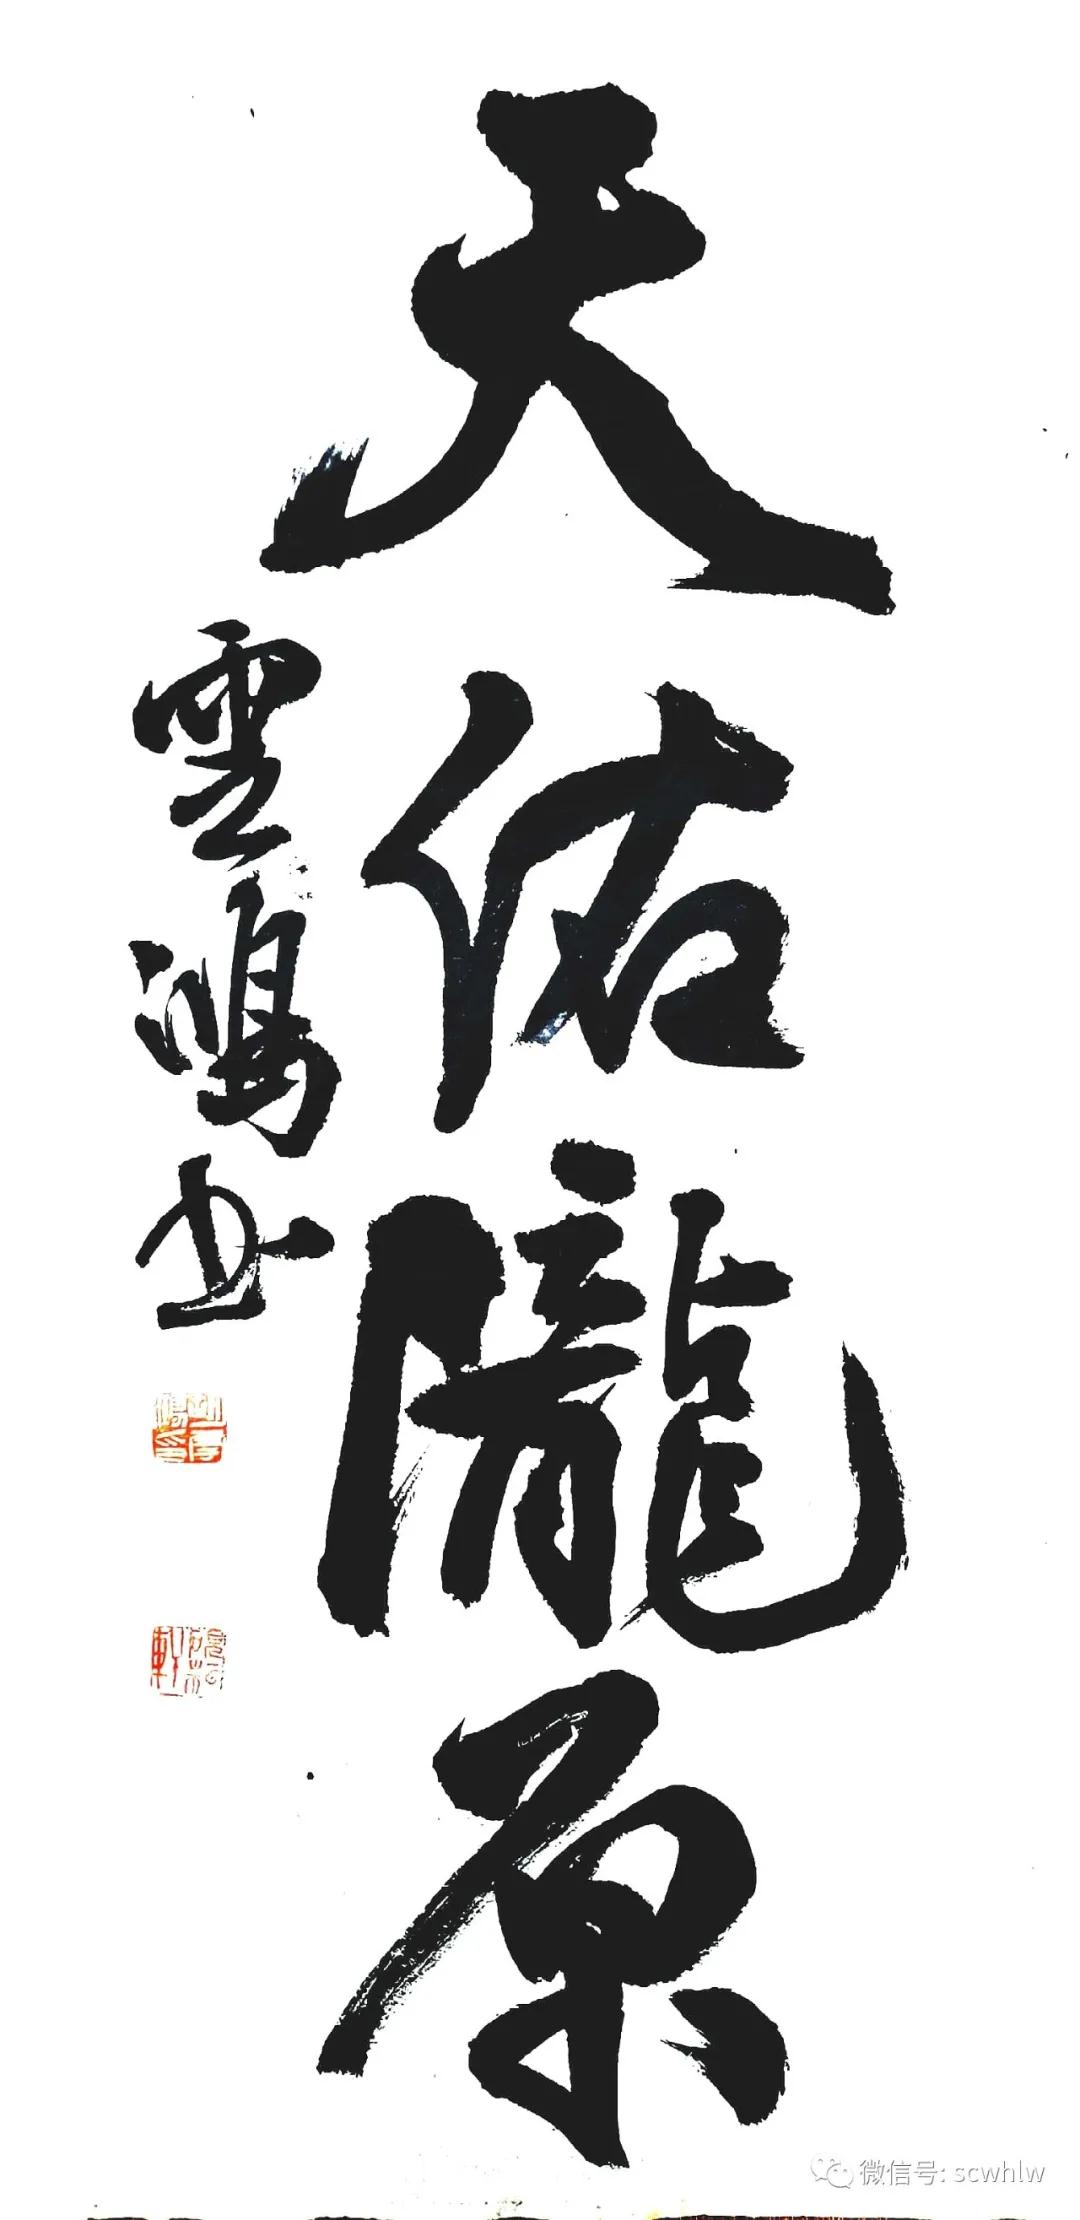 天佑隴原
雲鴻書
微信号: scwhlw